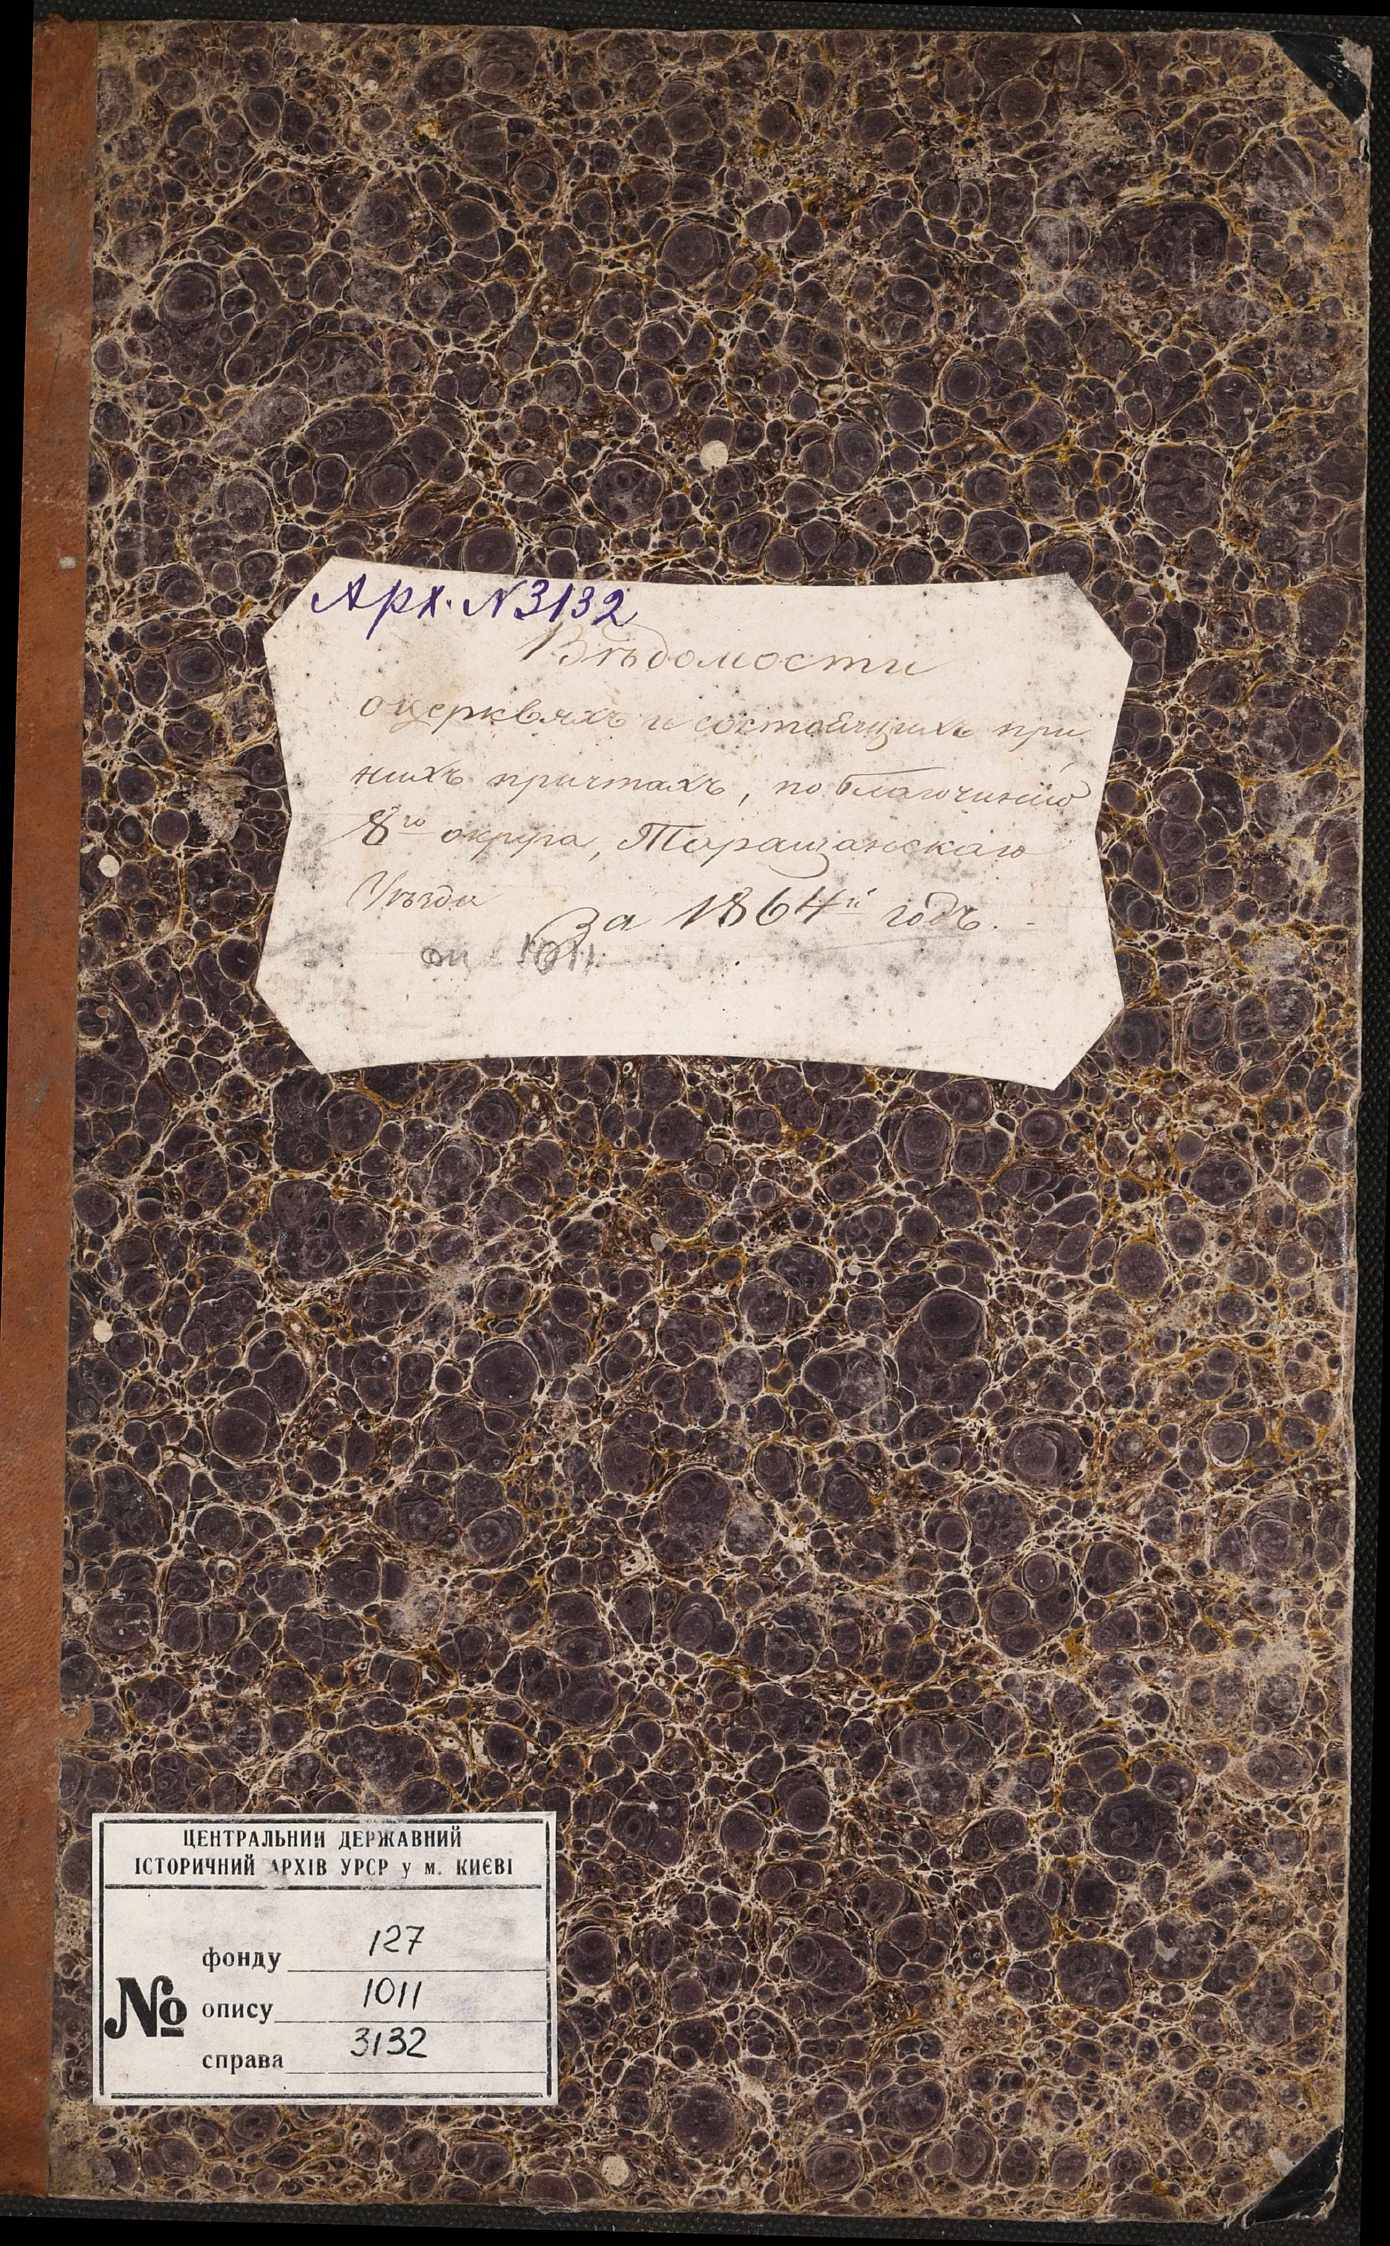 Арх. N3132
Вѣдомости
о церквахъ и состоящихъ при
нихъ причтахъ, по благочинію
8го округа, Таращанскаго
Уѣзда
за 1864й годъ.
оп 1011
ЦЕНТРАЛЬНИЙ ДЕРЖАВНИЙ
ІСТОРИЧНИЙ АРХІВ УРСР у м. КИЄВІ
фонду 127
№ опису 1011
справа 3132